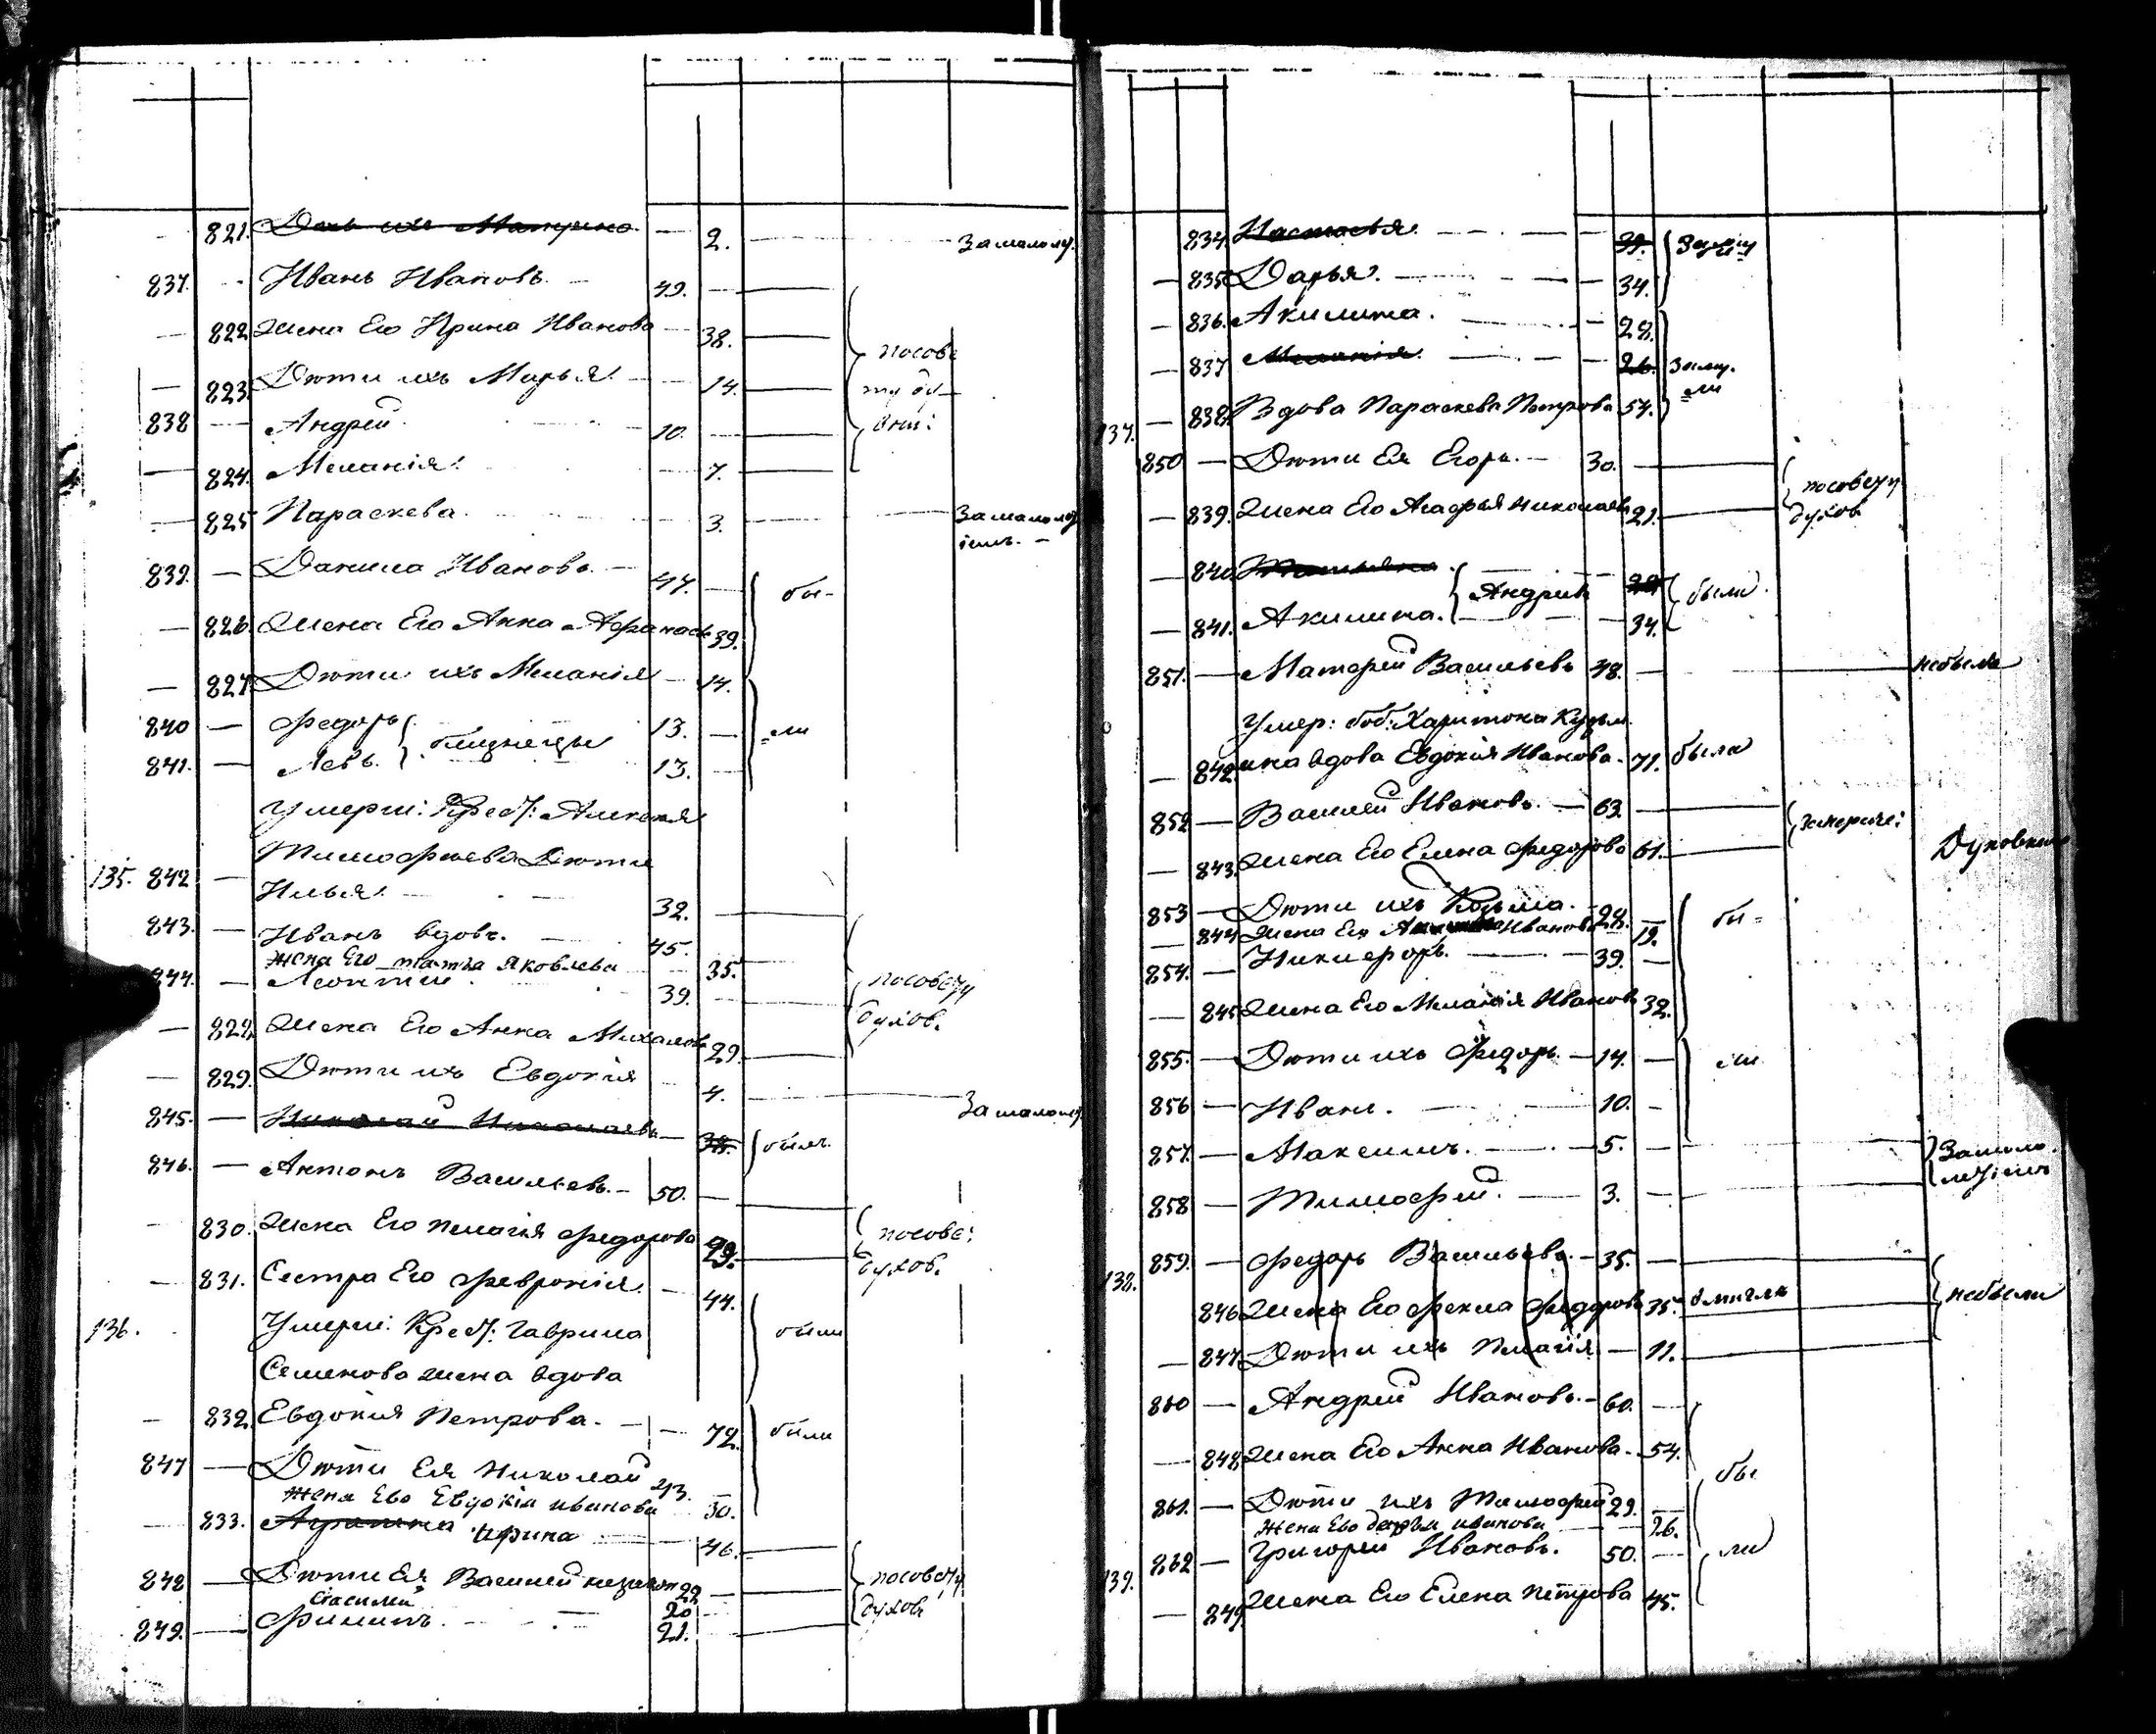 821. Дочь ихъ Матрена — 2. За малолѣ.
837. Иванъ Ивановъ. — 49.
822. Жена Его Ирина Иванова — 38.
посове
823. Дѣти ихъ Марья. — 14.
ту ду-
838 — Андрей 10.
вни:
824. Меланія. 7.
825 Параскева. 3. За малолѣ
тім. —
839. — Данила Ивановъ. — 47. бы-
826. Жена Его Анна Афанась 39.
827. Дѣти ихъ Меланія — 14.
840 — Федоръ 13. =ли
близнецы
841. — Левъ. 13.
Умерш: Крест: Алексея
Тимофеева Дѣти
135. 842 — Илья. 32.
843. — Иванъ вдовъ. 45.
Жена Его Яковлева 35.
844. — Леонтий 39. посовету
828. Жена Его Анна Михаилов 29. духов.
829. Дѣти ихъ Евдокия 4. За малолѣ
845. — Николай Николаевъ — былъ.
846. — Антонъ Васильевъ. — 50.
830. Жена Его Пелагія Федорова 29. посове:
духов.
831. Сестра Его Февронія. — 44.
136. Умерш: Крест: Гаврила были
Семенова жена вдова
832. Евдокия Петрова. — 72. были
847 — Дѣти Ея Николай 23.
Жена Ево Евдокия Иванова 30.
833. Ирина 46.
848 — Дѣти Ея Василей 22 посовету
20 духов
849. — Филипъ. 21.
834. Настасья. 39. За му
835 Дарья. — 34.
836. Акилина. — 28.
837 Меланія. — 26. Заму.
=ли
137. — 838. Вдова Параскева Петрова 57.
850 — Дѣти Ея Егоръ. — 30. посовету
839. Жена Его Агафья Николаев 21. духов
840. Татьяна
Андрея были.
841. Акилина. 34.
851. — Матфей Васильевъ 48. — небылъ
Умер: боб: Харитона Кузьм
842 ина вдова Евдокія Иванова. 71. была
852 — Василей Ивановъ. — 63.
843. Жена Его Елена Федорова 61. Духовник
853 — Дѣти ихъ Козьма. — 28. бы=
844 Жена Его Иванова 19.
854. — Никифоръ. — 39. —
845 Жена Его Меланія Иванов 32.
855. — Дѣти ихъ Федоръ. — 14. — ли
856 — Иванъ. — 10. —
857. — Максимъ. — 5. — За мало
летіем
858 — Тимофей. — 3. —
138. 859. — Федоръ Васильевъ. — 35. —
846 Жена Его Фекла Федорова 35. небыли
847 Дѣти ихъ Пелагія — 11.
860 — Андрей Ивановъ. — 60. —
848 Жена Его Анна Иванова. 54. бы
861. — Дѣти ихъ Тимофей 29. —
Жена Ево Дарья Иванова — 26.
139. 862 — Григорей Ивановъ. 50. — ли
849 Жена Его Елена Петрова 45.